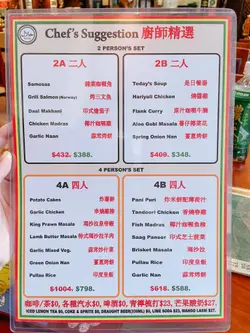 Chef's Suggestion 廚師精選
2 PERSON'S SET
2A 二人
Samosas
Grill Salmon (Norway) 烤三文魚
Daal Makhani 印式燴荳子
Chicken Madras 椰汁咖喱雞
Garlic Naan 蒜茸烤餅
$432. $388.
2B 二人
Today's Soup 是日餐湯
Hariyali Chicken 烤雞
Flank Curry 原汁咖喱牛腩
Aloo Gobi Masala
Spring Onion Nan 薑蔥烤餅
$409. $348.
4 PERSON'S SET
4A 四人
Potato Cakes 炸薯餅
Garlic Chicken 香燒雞
King Prawn Masala 瑪沙拉皇帝蝦
Lamb Butter Masala 特式瑪沙拉羊肉
Garlic Mixed Veg. 蒜茸炒什菜
Green Onion Nan 薑蔥烤餅
Pullao Rice 印度皇飯
$1004. $798.
4B 四人
Pani Puri 炸米餅配薄荷汁
Tandoori Chicken 特色燒春雞
Fish Madras 椰汁咖喱魚
Saag Paneer 印式芝士菠菜
Brisket Masala 瑪沙拉牛腩
Garlic Naan 蒜茸烤餅
Pullao Rice 印度皇飯
$618. $588.
咖啡/茶$0, 各種汽水$0, 啤酒$0, 青檸梳打$23, 芒果酸奶$27.
ICED LEMON TEA $0, COKE & SPRITE $0, DRAUGHT BEER(COINS) $0, LIME SODA $23, MANGO LASSI $27.